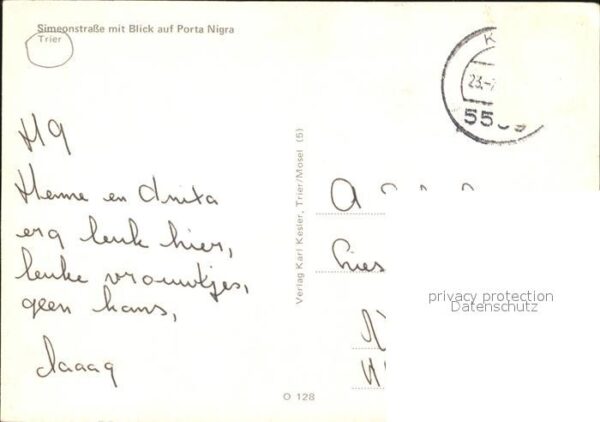 Simeonstraße mit Blick auf Porta Nigra
Trier
23.-
55
Henne en Anita
erg leuk hier,
leuke vrouwtjes,
geen kans,
daaag
Verlag Karl Kesler, Trier/Mosel (5)
O 128
privacy protection
Datenschutz